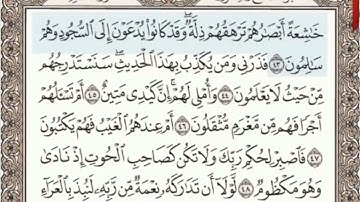 خَٰشِعَةً أَبْصَٰرُهُمْ تَرْهَقُهُمْ ذِلَّةٌ ۖ وَقَدْ كَانُوا۟ يُدْعَوْنَ إِلَى ٱلسُّجُودِ وَهُمْ
سَٰلِمُونَ ٤٣ فَذَرْنِى وَمَن يُكَذِّبُ بِهَٰذَا ٱلْحَدِيثِ ۖ سَنَسْتَدْرِجُهُم
مِّنْ حَيْثُ لَا يَعْلَمُونَ ٤٤ وَأُمْلِى لَهُمْ ۚ إِنَّ كَيْدِى مَتِينٌ ٤٥ أَمْ تَسْـَٔلُهُمْ
أَجْرًا فَهُم مِّن مَّغْرَمٍ مُّثْقَلُونَ ٤٦ أَمْ عِندَهُمُ ٱلْغَيْبُ فَهُمْ يَكْتُبُونَ
٤٧ فَٱصْبِرْ لِحُكْمِ رَبِّكَ وَلَا تَكُن كَصَاحِبِ ٱلْحُوتِ إِذْ نَادَىٰ
وَهُوَ مَكْظُومٌ ٤٨ لَّوْلَآ أَن تَدَٰرَكَهُۥ نِعْمَةٌ مِّن رَّبِّهِۦ لَنُبِذَ بِٱلْعَرَآءِ